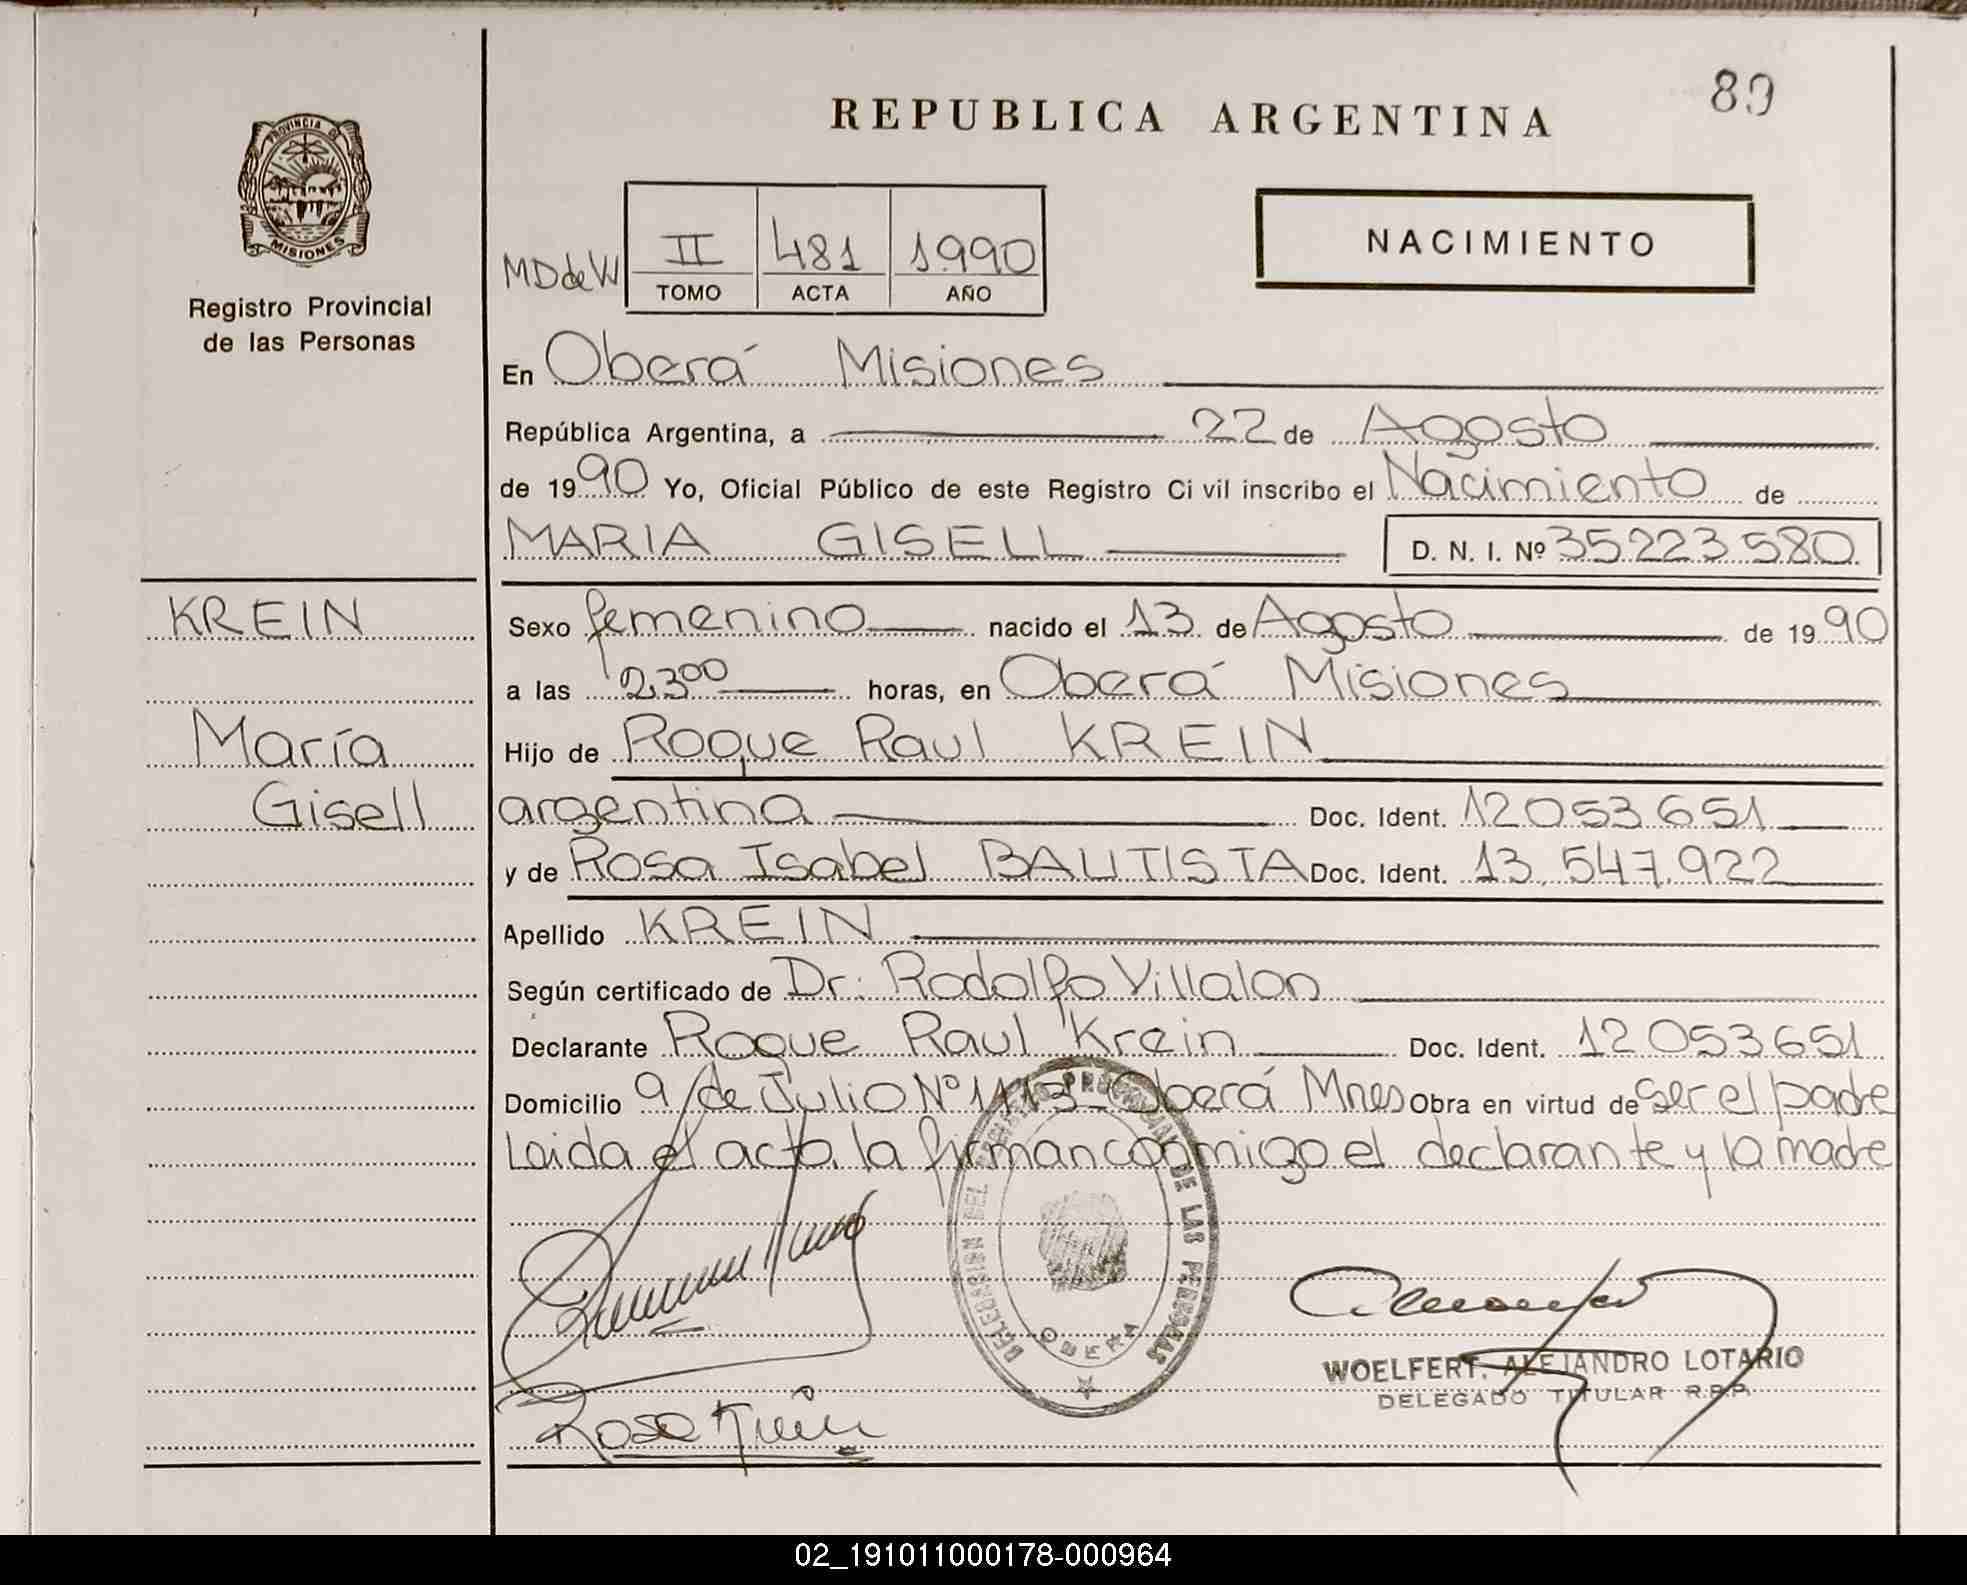 89
REPUBLICA ARGENTINA
PROVINCIA DE
MISIONES
Registro Provincial
de las Personas
MDdeW
II 481 1990
TOMO ACTA AÑO
NACIMIENTO
En Oberá Misiones
República Argentina, a 22 de Agosto
de 1990 Yo, Oficial Público de este Registro Ci vil inscribo el Nacimiento de
MARIA GISELL D. N. I. Nº 35.223.580
KREIN
María
Gisell
Sexo femenino nacido el 13 de Agosto de 1990
a las 23⁰⁰ horas, en Oberá Misiones
Hijo de Roque Raul KREIN
argentina Doc. Ident. 12053651
y de Rosa Isabel BAUTISTA Doc. Ident. 13.547.922
Apellido KREIN
Según certificado de Dr: Rodolfo Villalon
Declarante Roque Raul Krein Doc. Ident. 12053651
Domicilio 9 de Julio Nº 1113 - Oberá Mnes Obra en virtud de ser el padre
Leida el acta la firman conmigo el declarante y la madre
DELEGACION DEL REGISTRO PROVINCIAL DE LAS PERSONAS
OBERA
WOELFERT, ALEJANDRO LOTARIO
DELEGADO TITULAR R.P.P.
Rosa Krein
02_191011000178-000964